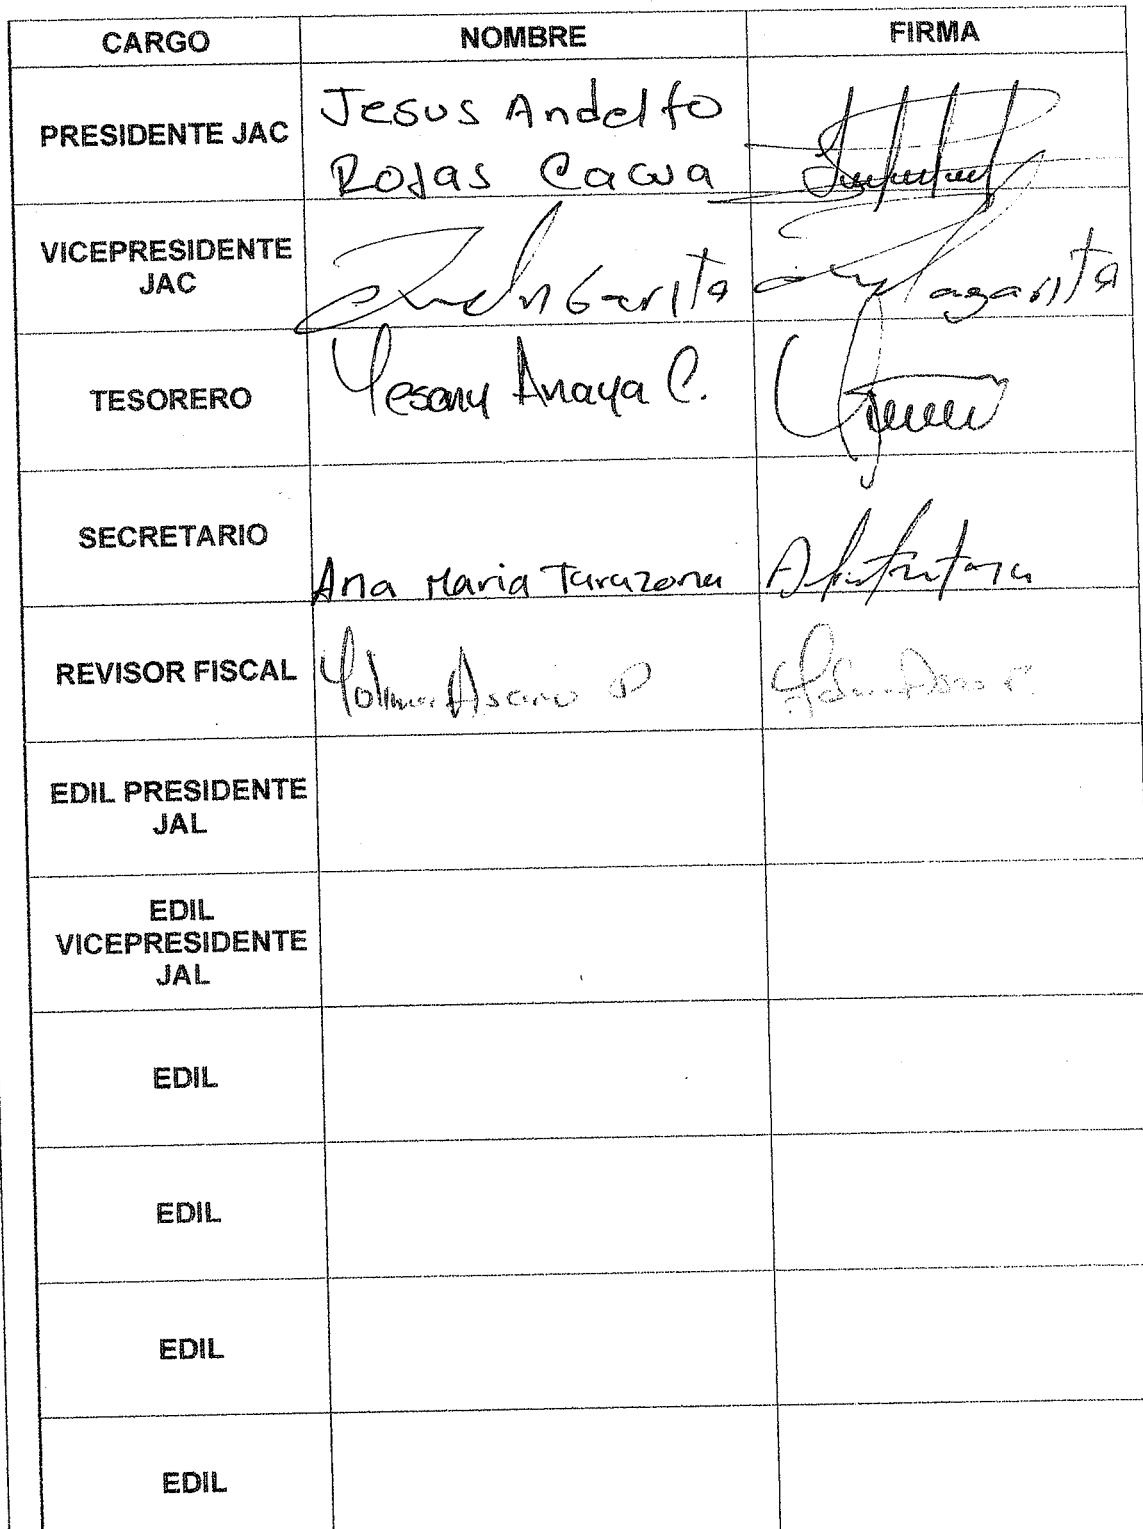 CARGO NOMBRE FIRMA
PRESIDENTE JAC
Jesus Andelfo
Rojas Cacua
VICEPRESIDENTE
JAC
Garita
TESORERO
Yesany Anaya C.
SECRETARIO
Ana Maria Tarazona
REVISOR FISCAL
EDIL PRESIDENTE
JAL
EDIL
VICEPRESIDENTE
JAL
EDIL
EDIL
EDIL
EDIL